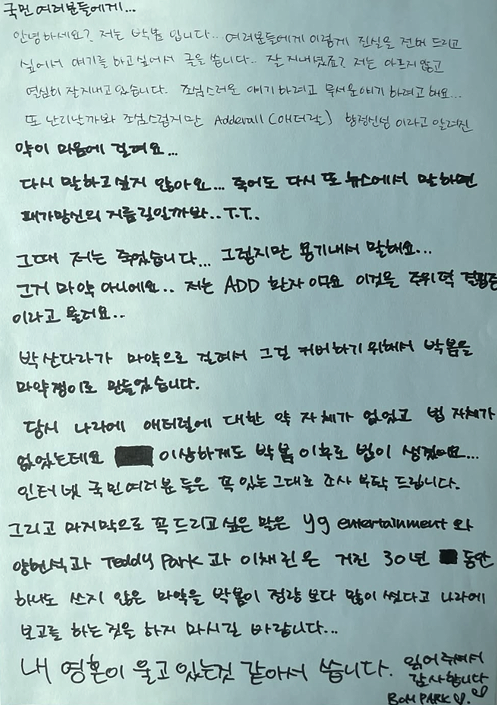 국민 여러분들에게...
안녕하세요? 저는 박봄 입니다... 여러분들에게 이렇게 진실을 전해 드리고
싶어서 얘기를 하고싶어서 글을 씁니다.. 잘 지내셨죠? 저는 아프지 않고
열심히 잘지내고 있습니다. 조심스러운 얘기 하려고 무서운얘기 하려고 해요...
또 난리날까봐 조심스럽지만 Adderall (애더럴) 향정신성 이라고 알려진
약이 마음에 걸려요...
다시 말하고싶지 않아요... 죽어도 다시 또 뉴스에서 말하면
패가망신의 지름길일까봐.. T.T..
그때 저는 죽었습니다... 그렇지만 용기내서 말해요...
그거 마약 아니에요.. 저는 ADD 환자 이구요 이것을 주위력 결핍증
이라고 불러요..
박산다라가 마약으로 걸려서 그걸 커버하기 위해서 박봄을
마약쟁이로 만들었습니다.
당시 나라에 애더럴에 대한 약 자체가 없었고 법 자체가
없었는데요 이상하게도 박봄 이후로 법이 생겼어요...
인터넷 국민여러분 들은 꼭 있는그대로 조사 부탁 드립니다.
그리고 마지막으로 꼭드리고싶은 말은 yg entertainment 와
양현석과 Teddy Park 과 이채린 은 거진 30년 동안
하나도 쓰지 않은 마약을 박봄이 정량 보다 많이 썼다고 나라에
보고를 하는것을 하지 마시길 바랍니다...
내 영혼이 울고 있는것 같아서 씁니다. 읽어주셔서
감사합니다
BOM PARK ♡.♡